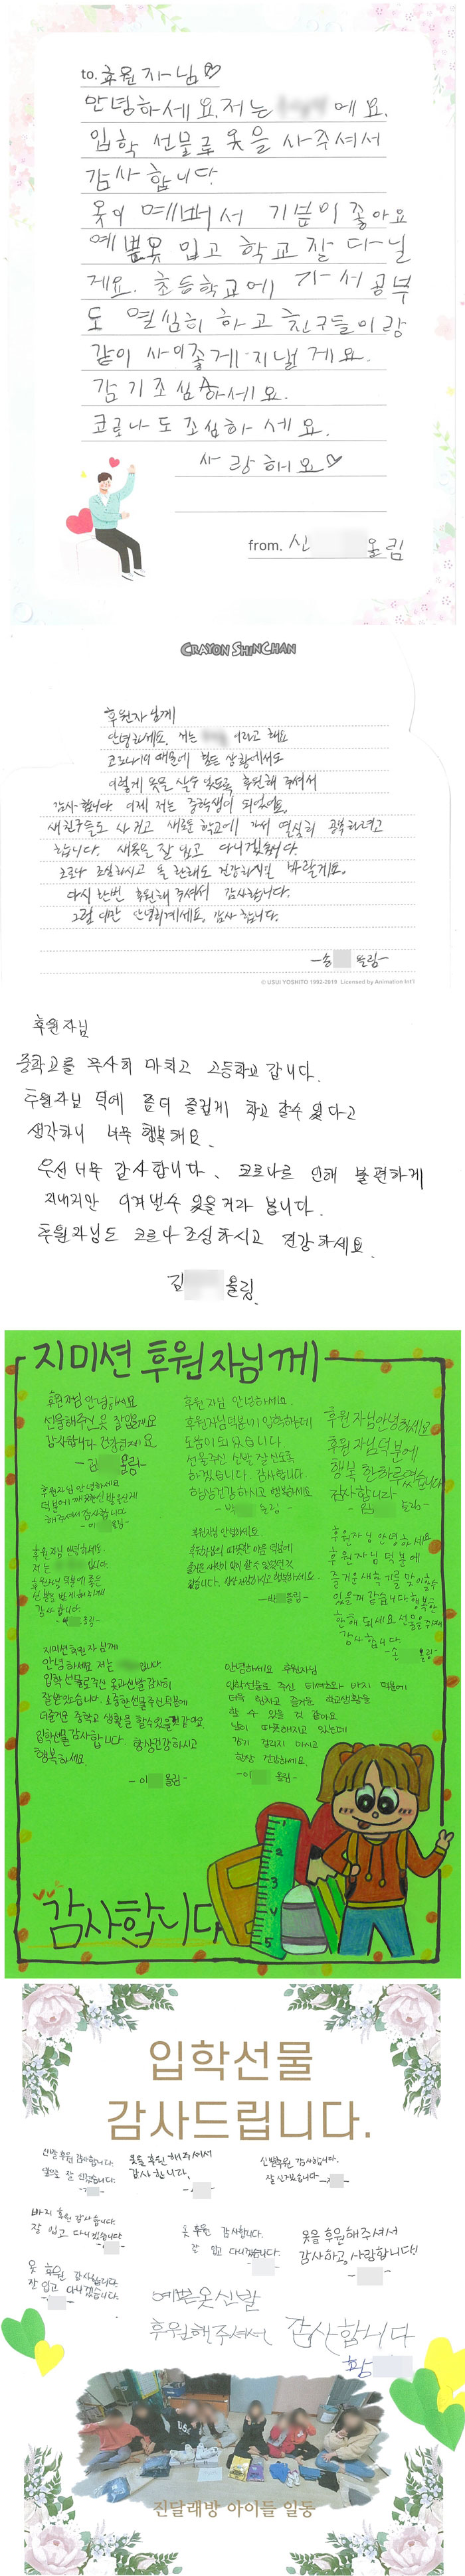 to. 후원자님♡
안녕하세요. 저는 에요.
입학 선물로 옷을 사주셔서
감사합니다
옷이 예뻐서 기분이 좋아요
예쁜옷 입고 학교 잘 다닐
게요. 초등학교에 가서 공부
도 열심히 하고 친구들이랑
같이 사이좋게 지낼게요.
감기조심하세요.
코로나도 조심하세요.
사랑해요♡
from. 신 올림
CRAYON SHINCHAN
후원자님께
안녕하세요. 저는 이라고 해요
코로나19 때문에 힘든 상황에서도
이렇게 옷을 살수 있도록 후원해 주셔서
감사합니다 이제 저는 중학생이 되었어요.
새친구들도 사귀고 새로운 학교에 가서 열심히 공부하려고
합니다. 새옷을 잘 입고 다니겠습니다.
코로나 조심하시고 올 한해도 건강하시길 바랄게요.
다시 한번 후원해 주셔서 감사합니다.
그럼 이만 안녕히계세요. 감사합니다.
-송 올림-
© USUI YOSHITO 1992-2019 Licensed by Animation Int'l
후원자님
중학교를 무사히 마치고 고등학교 갑니다.
후원자님 덕에 좀더 즐겁게 학교 갈수 있다고
생각하니 너무 행복해요.
우선 너무 감사합니다. 코로나로 인해 불편하게
지내지만 이겨낼수 있을거라 봅니다.
후원자님도 코로나 조심하시고 건강하세요.
김 올림.
지미션 후원자님께
후원자님 안녕하세요
선물해주신 옷 잘입을게요
감사합니다 건강하세요
-김 올림-
후원자님 안녕하세요
덕분에 깨끗한신발을신게
해주셔서감사합니다
-이 올림-
후원자님 안녕하세요.
저는 입니다.
후원자님 덕분에 좋은
신발을 받게 되어서
감사합니다.
올림-
후원자님 안녕하세요.
후원자님덕분이 입학하는데
도움이되었습니다.
선물주신 신발 잘 신도록
하겠습니다. 감사합니다.
항상건강하시고 행복하세요.
-박 올림-
후원자님, 안녕하세요.
후원자님의 따뜻한 마음 덕분에
-박 올림-
후원자님안녕하세요
후원자님덕분에
행복한하루였습니다
감사합니다
올림-
후원자님 안녕하세요
후원자님 덕분에
즐거운새학기를 맞이할수
있을꺼 같습니다 행복한
한해 되세요 선물을 주셔서
감사합니다
올림-
지미션후원자님께
안녕하세요 저는 입니다.
입학 선물로주신 옷과신발 감사히
잘받았습니다. 소중한선물주신덕분에
더즐거운 중학교 생활을 할수있을것 같아요.
입학선물감사합니다 항상건강하시고
행복하세요.
-이 올림-
안녕하세요 후원자님
입학선물로 주신 티셔츠와 바지 덕분에
더욱 멋지고 즐거운 학교생활을
할 수 있을 것 같아요
날이 따뜻해지고 있는데
감기 걸리지 마시고
항상 건강하세요.
-이 올림-
감사합니다
1
2
3
4
5
입학선물
감사드립니다.
신발 후원 감사합니다.
앞으로 잘 신겠습니다.
옷을 후원 해주셔서
감사합니다.
신발후원 감사합니다.
잘 신겠습니다
바지 후원 감사합니다.
잘 입고 다니겠습니다
옷 후원 감사합니다.
잘 입고 다니겠습니다.
옷을 후원해주셔서
감사하고, 사랑합니다!
옷 후원 감사합니다.
잘 입고 다니겠습니다.
예쁜옷신발
후원해주셔서 감사합니다
황
진달래방 아이들 일동